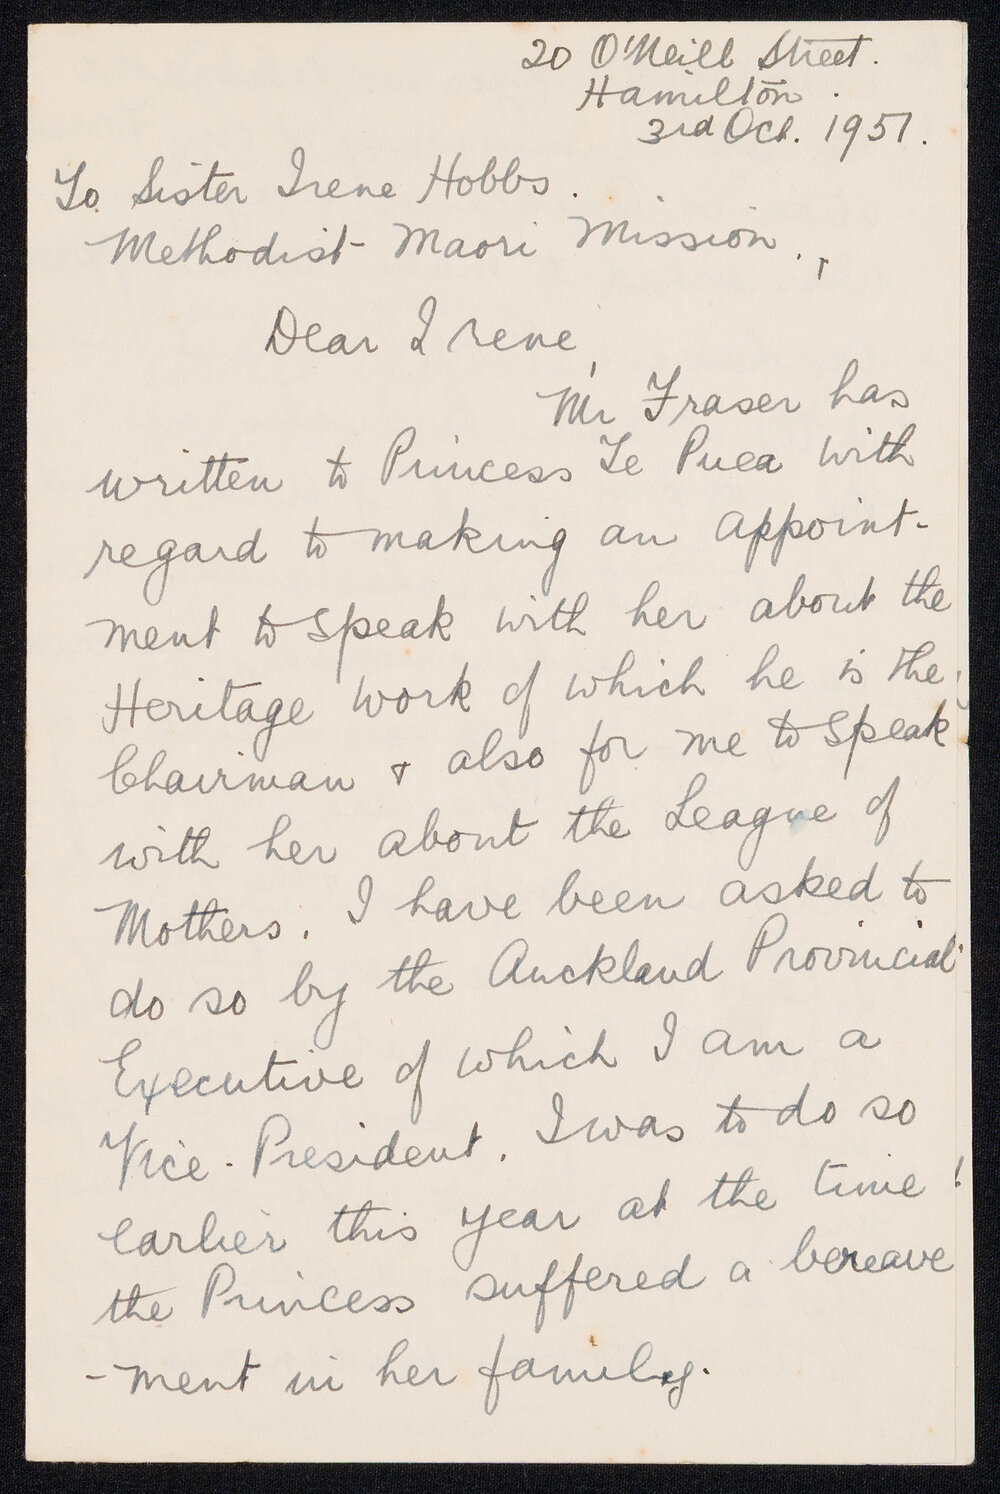 20 O'Neill Street.
Hamilton.
3rd Oct. 1951.
To Sister Irene Hobbs.
Methodist Maori Mission.,
Dear Irene,
Mr Fraser has
written to Princess Te Puea with
regard to making an appoint-
ment to speak with her about the
Heritage work of which he is the
Chairman & also for me to speak
with her about the League of
Mothers. I have been asked to
do so by the Auckland Provincial
Executive of which I am a
Vice-President. I was to do so
earlier this year at the time
the Princess suffered a bereave
-ment in her family.